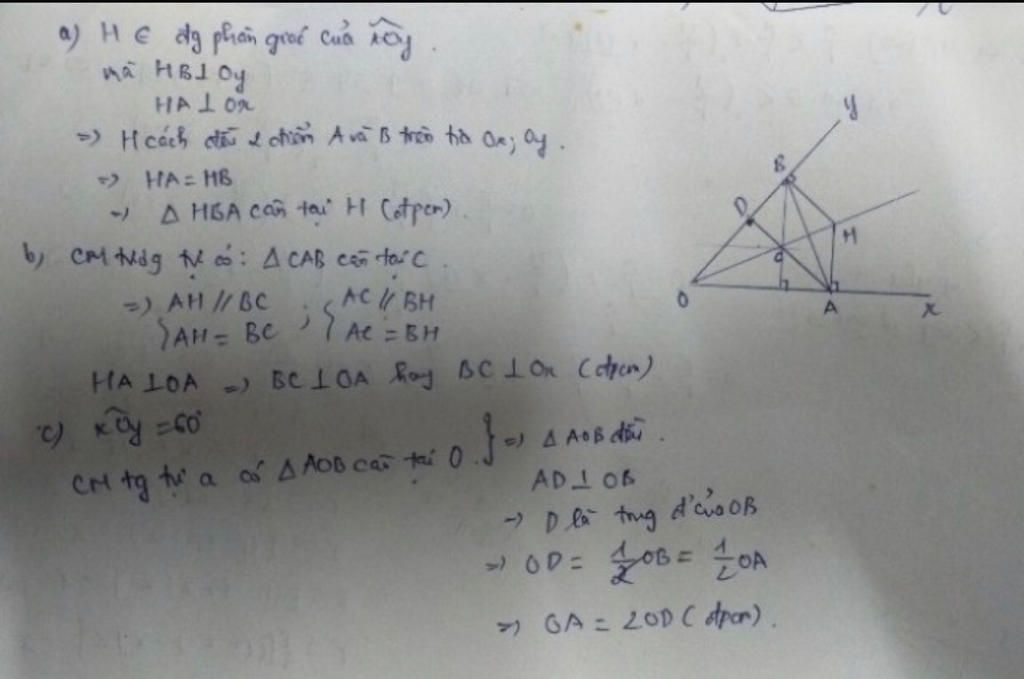 a) H ∈ đg phân giác của xOy.
mà HB ⊥ Oy
HA ⊥ Ox
=> H cách đều 2 điểm A và B trên tia Ox; Oy.
=> HA = HB
=> Δ HBA cân tại H (đpcm).
b) CM tương tự có: Δ CAB cân tại C.
=> { AH // BC ; { AC // BH
AH = BC AC = BH
HA ⊥ OA => BC ⊥ OA hay BC ⊥ Ox (đpcm)
c) xOy = 60°
CM tg tự a có Δ AOB cân tại O. } => Δ AOB đều.
AD ⊥ OB
=> D là trung đ' của OB
=> OD = 1/2 OB = 1/2 OA
=> OA = 2OD (đpcm).
y
B
D
H
C
O
A
x